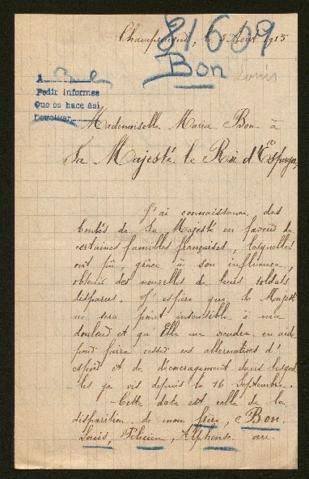 81609
Bon Louis
Champagnol, le 8 Août 1915
A
Pedir informes
Que se hace así
Devolver
Mademoiselle Maria Bon à
Sa Majesté le Roi d'Espagne
J'ai connaissance des
bontés de Sa Majesté en faveur de
certaines familles françaises, lesquelles
ont pu, grâce à son influence,
obtenir des nouvelles de leurs soldats
disparus. J'espère que Sa Majesté
ne sera point insensible à ma
douleur et qu'Elle me viendra en aide
pour faire cesser ces alternatives d'
espoir et de découragement dans lesquelles
je vis depuis le 16 Septembre.
Cette date est celle de la
disparition de mon frère, Bon
Louis, Félicien, Alphonse